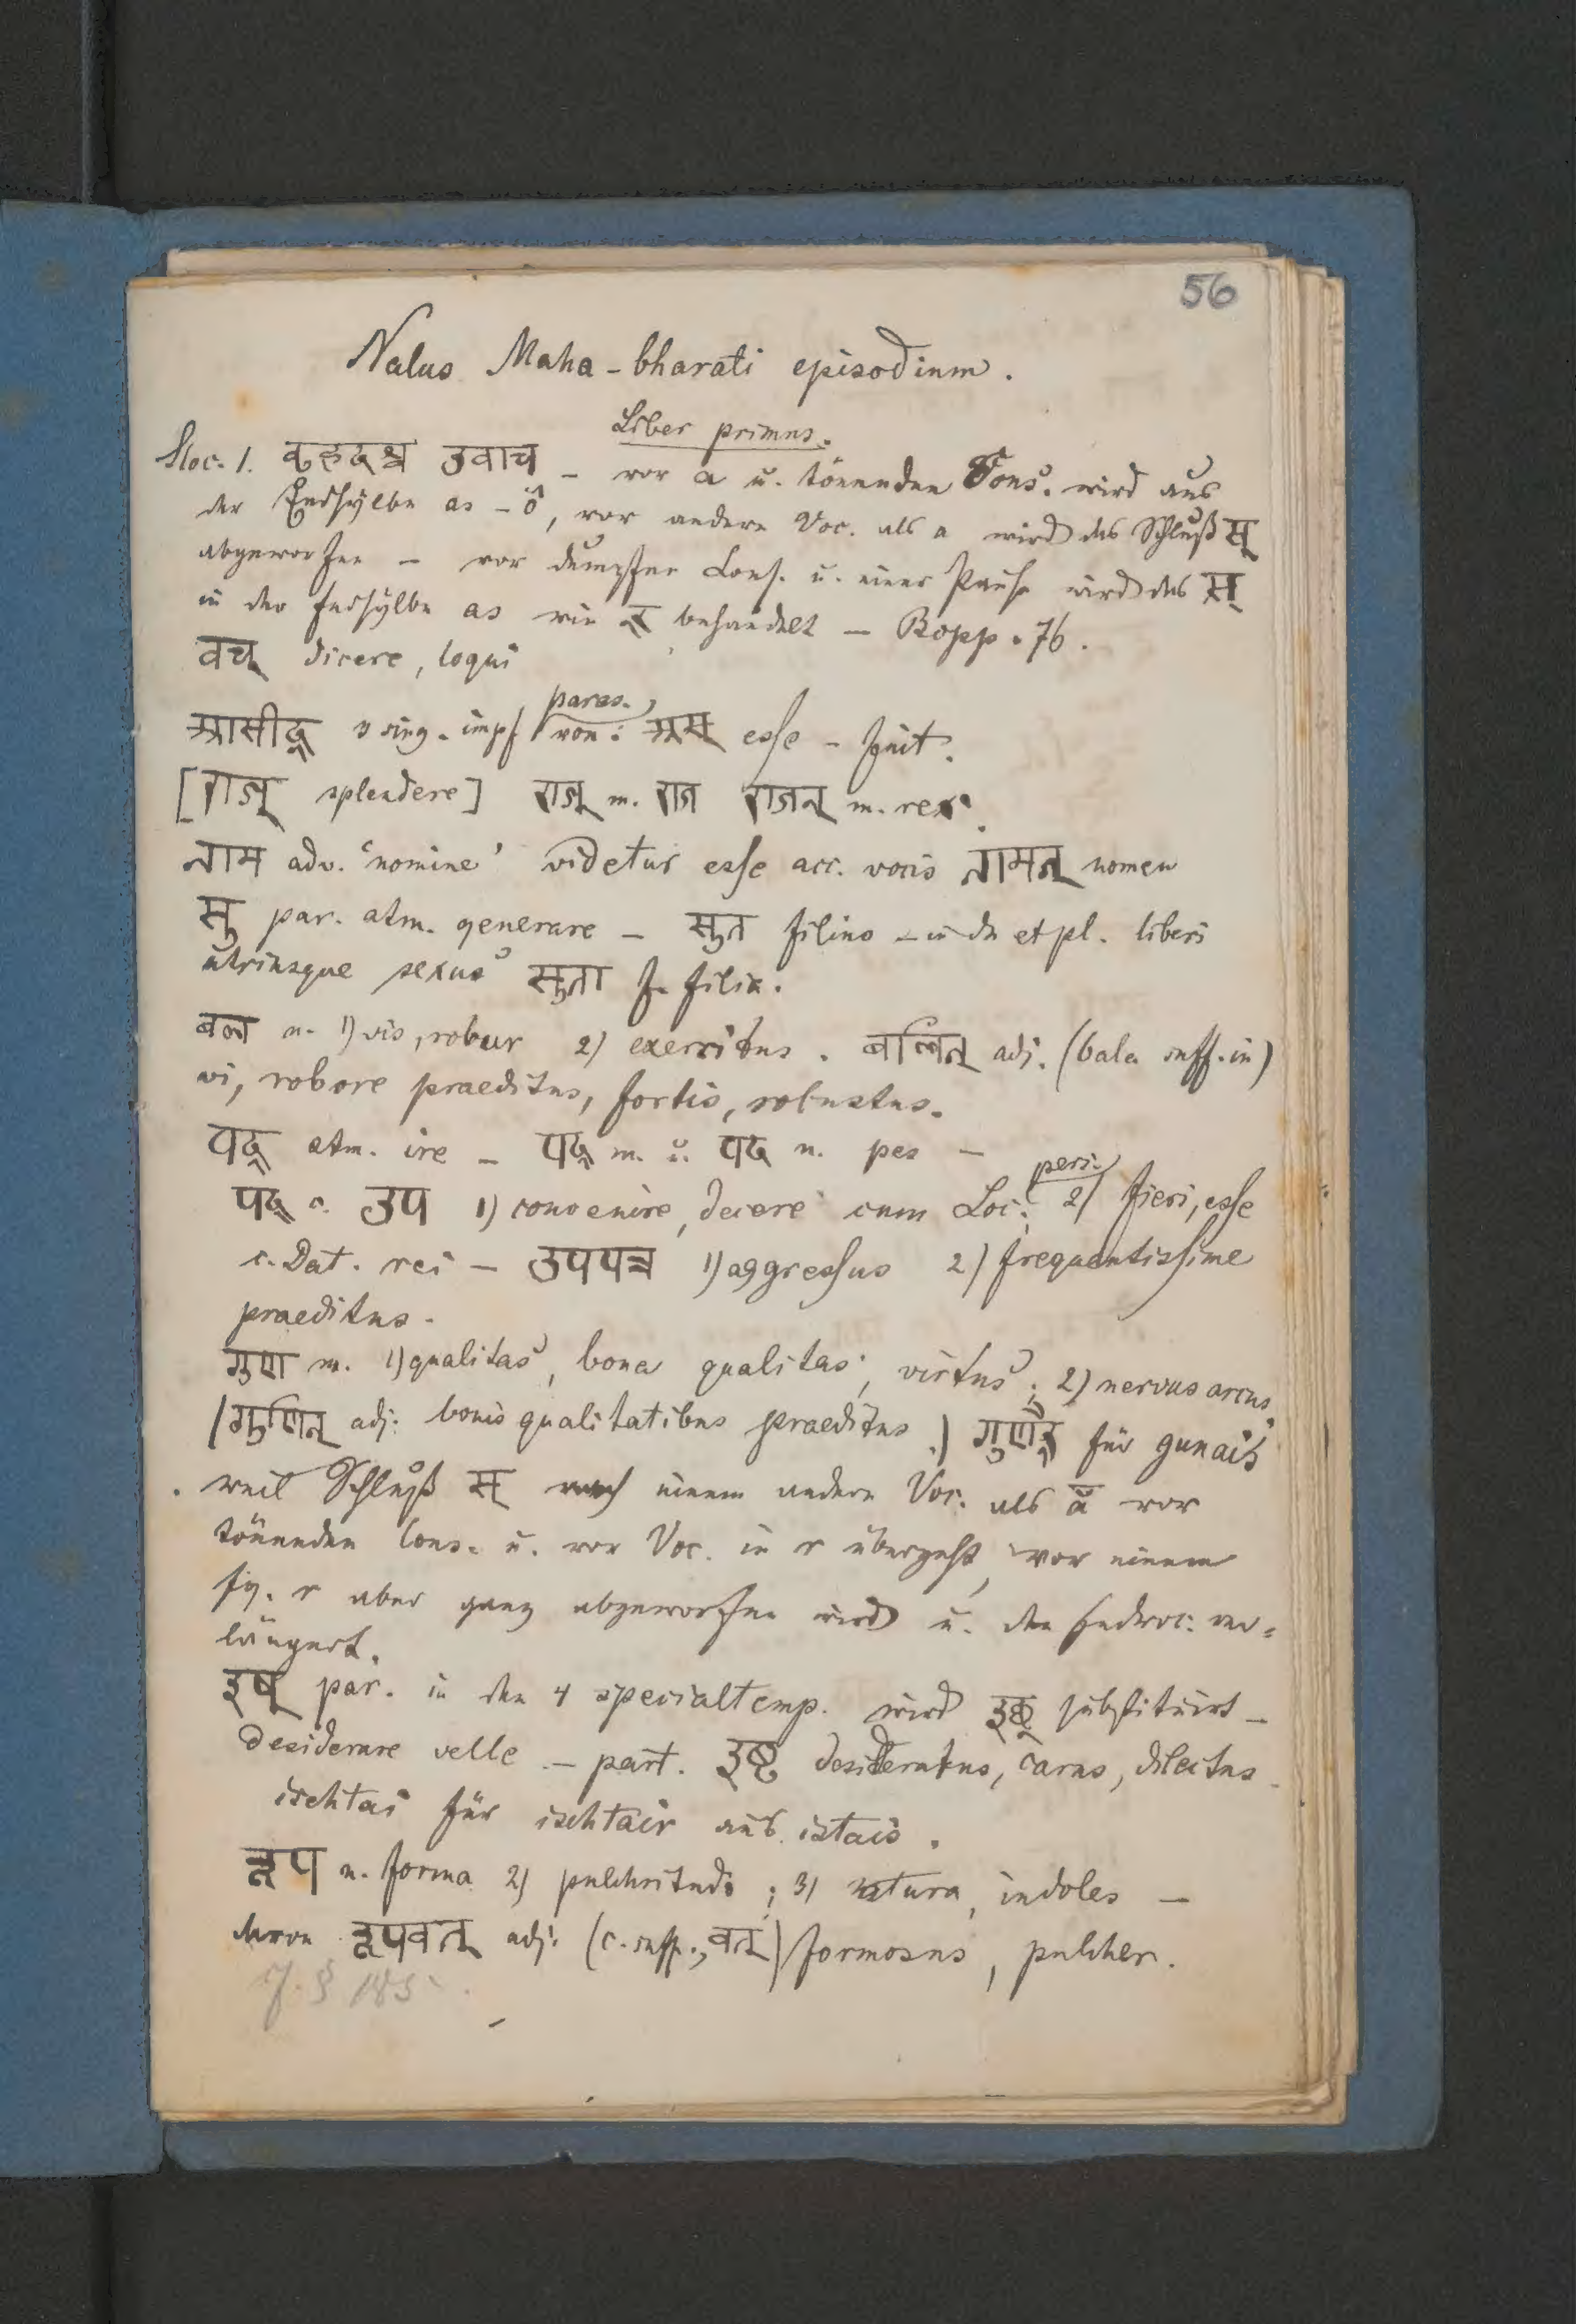 56
Nalus Maha-bharati episodium.
Liber primus.
Sloc. 1. वृहदश्व उवाच – vor a u. tönenden Cons. wird aus
der Endsylbe as – ô, vor andern Voc. als a wird das Schluß स्
abgeworfen – vor dumpfen Cons. u. einer Pause wird das स्
in der Endsylbe as wie र् behandelt – Bopp. 76.
वच् dicere, loqui
आसीद् 3 sing. impf paras. von: अस् esse – fuit.
[राज् splendere] राज् m. राज राजन् m. rex.
नाम adv. 'nomine' videtur esse acc. vocis नामन् nomen
सु par. atm. generare – सुत filius – in du et pl. liberi
utriusque sexus सुता f. filia.
बल n. 1) vis, robur 2) exercitus. बलिन् adj. (bala suff. in)
vi, robore praeditus, fortis, robustus.
पद् atm. ire – पद् m. u. पद n. pes –
पद् c. उप 1) convenire, decere cum Loc. pers. 2) fieri, esse
c. Dat. rei – उपपन्न 1) aggressus 2) frequentissime
praeditus.
गुण m. 1) qualitas, bona qualitas, virtus; 2) nervus arcus
(गुणिन् adj: bonis qualitatibus praeditus.) गुणैर् für gunais
weil Schluß स् nach einem andern Voc. als ā vor
tönenden Cons. u. vor Voc. in r übergeht, vor einem
fg. r aber ganz abgeworfen wird u. der Endvoc. ver=
längert.
इष् par. in den 4 specialtemp. wird इछ् substituirt –
desiderare velle – part. इष्ट desideratus, carus, dilectus
ischtai für ischtair aus istais.
रूप n. forma 2) pulchritudo; 3) natura, indoles –
davon रूपवत् adj. (c. suff. वत्) formosus, pulcher.
§ 185